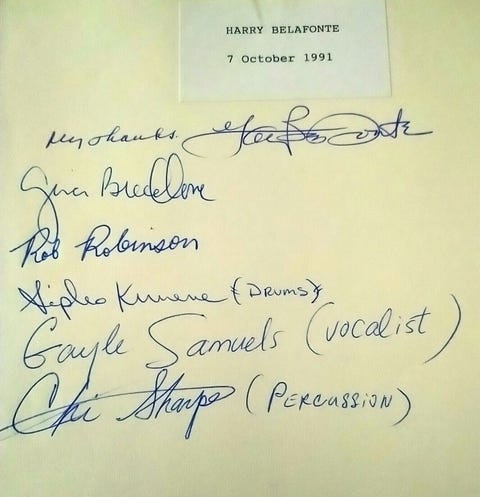 HARRY BELAFONTE
7 October 1991
My thanks. Harry Belafonte
Gina Bredlone
Rob Robinson
Sipho Kunene {DRUMS}
Gayle Samuels (VOCALIST)
Chi Sharpe (PERCUSSION)